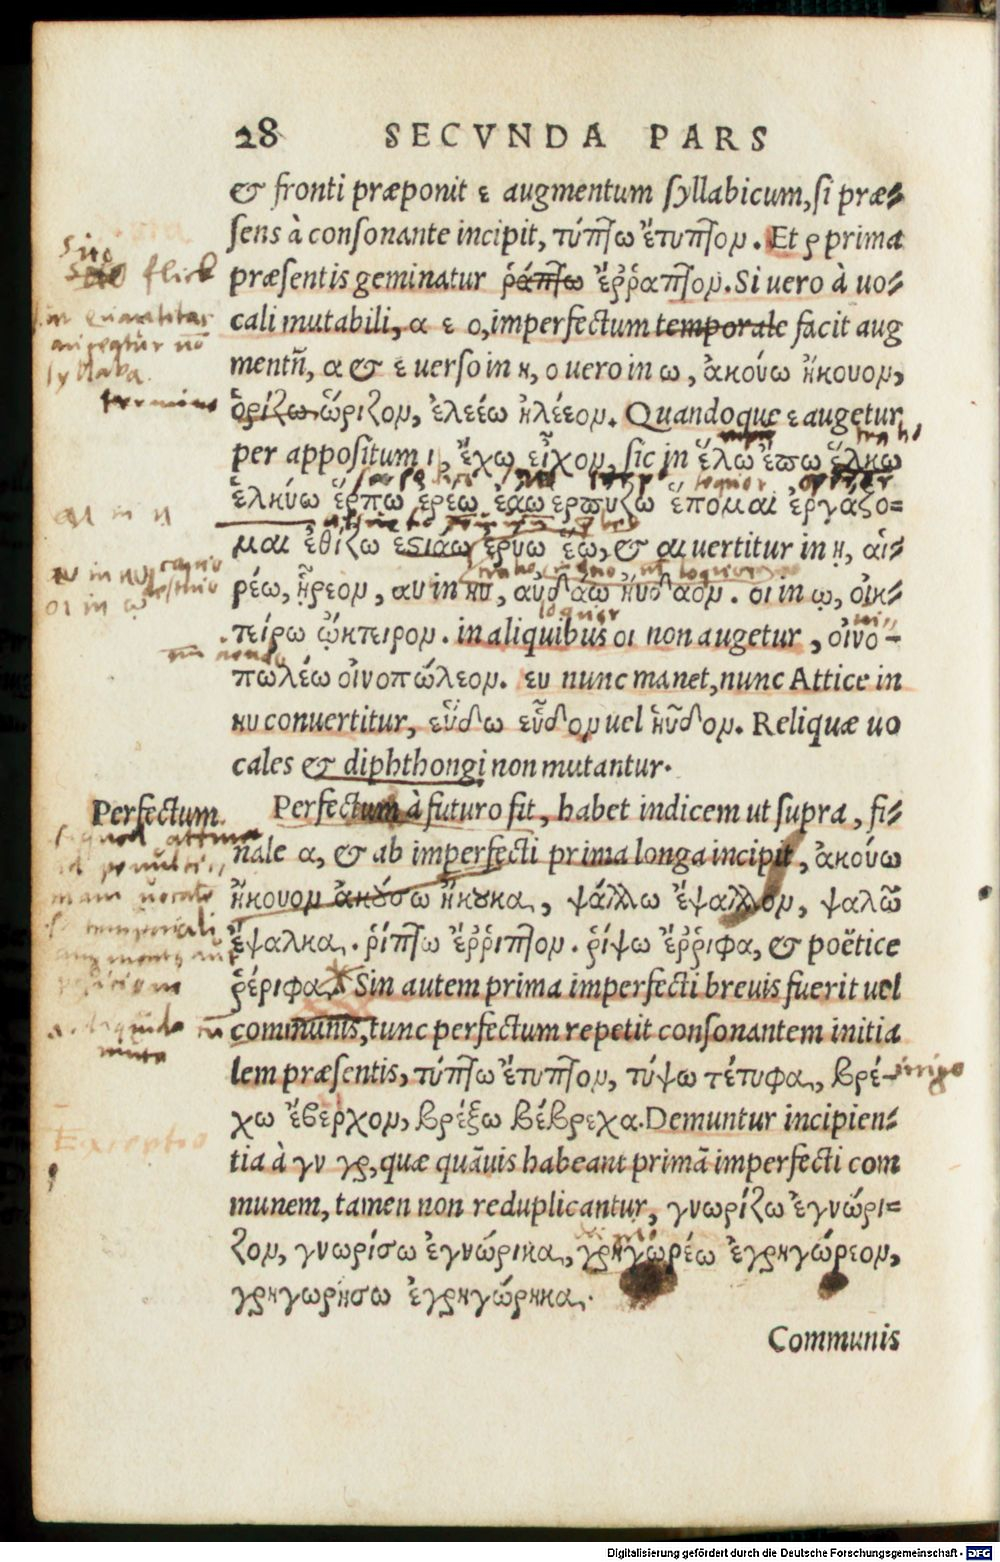 28 SECVNDA PARS
& fronti præponit ε augmentum syllabicum, si præ=
sens à consonante incipit, τύπτω ἔτυπτον. Et ρ prima
præsentis geminatur ῥάπτω ἔῤῥαπτον. Si vero à uo=
cali mutabili, α ε ο, imperfectum temporale facit aug
mentũ, α & ε verso in η, ο uero in ω, ἀκούω ἤκουον,
ὁρίζω ὥριζον, ἐλεέω ἠλέεον. Quandoque ε augetur
per appositum ι, ἔχω εἶχον, sic in ἕλω ἕπω ἕλκω
ἑλκύω ἕρπω ἐρέω ἐάω ἑρπύζω ἕπομαι ἐργάζο=
μαι ἐθίζω ἑστιάω ἐρύω ἕω, & αι uertitur in ῃ, αἱ=
ρέω, ᾕρεον, αυ in ηυ, αὐδάω ηὔδαον. οι in ῳ, οἰκ=
τείρω ᾤκτειρον. in aliquibus οι non augetur, οἰνο-
πωλέω οἰνοπώλεον. ευ nunc manet, nunc Attice in
ηυ conuertitur, εὕδω εὗδον uel ηὗδον. Reliquæ uo
cales & diphthongi non mutantur.
Perfectum.
Perfectum à futuro fit, habet indicem ut supra, fi=
nale α, & ab imperfecti prima longa incipit, ἀκούω
ἤκουον ἀκούσω ἤκουκα, ψάλλω ἔψαλλον, ψαλῶ
ἔψαλκα. ῥίπτω ἔῤῥιπτον. ῥίψω ἔῤῥιφα, & poëtice
ῥέριφα. Sin autem prima imperfecti brevis fuerit uel
communis, tunc perfectum repetit consonantem initia
lem præsentis, τύπτω ἔτυπτον, τύψω τέτυφα, βρέ-
χω ἔβερχον, βρέξω βέβρεχα. Demuntur incipien=
tia à γν γρ, quæ quãuis habeant primã imperfecti com
munem, tamen non reduplicantur, γνωρίζω ἐγνώρι=
ζον, γνωρίσω ἐγνώρικα, γρηγωρέω ἐγρηγώρεον,
γρηγωρήσω ἐγρηγώρηκα.
Communis
αι in η
οι in ῳ
Exceptio
Digitalisierung gefördert durch die Deutsche Forschungsgemeinschaft - DFG